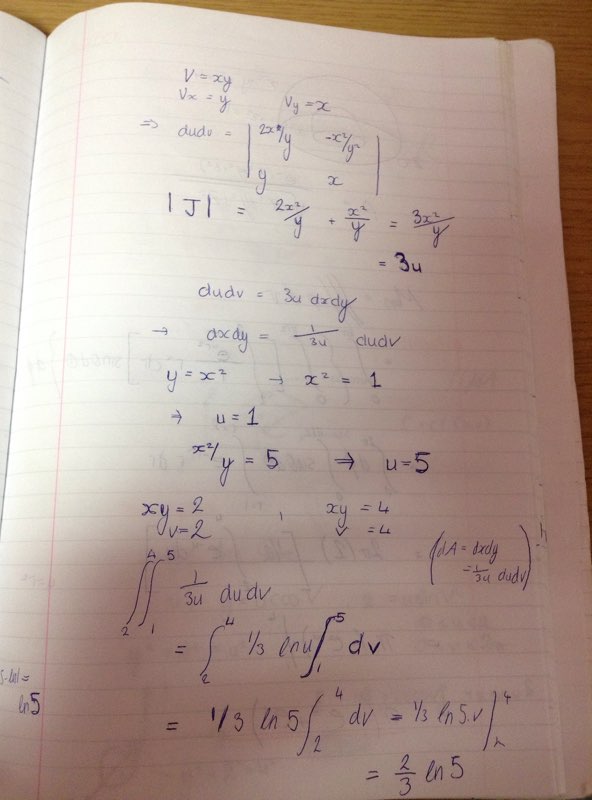 V = xy
Vx = y Vy = x
⇒ dudv = | 2x/y -x²/y² |
| y x |
|J| = 2x²/y + x²/y = 3x²/y
= 3u
dudv = 3u dxdy
→ dxdy = 1/3u dudv
y = x² → x² = 1
⇒ u = 1
x²/y = 5 ⇒ u = 5
xy = 2 , xy = 4
v = 2 v = 4
∫₂⁴ ∫₁⁵ 1/3u dudv
(dA = dxdy
= 1/3u dudv)
= ∫₂⁴ 1/3 ln u ]₁⁵ dv
= 1/3 (ln 5 ∫₂⁴ dv = 1/3 ln 5.v ]₂⁴
= 2/3 ln 5
ln 5